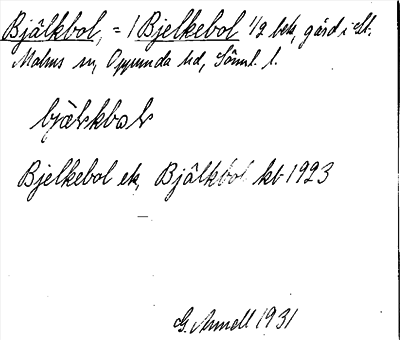 Bjälkbol, = 1 Bjelkebol 1/2 bek, gård i St.
Malms sn, Oppunda hd, Sörml. l.
bjälkbol
Bjelkebol ek, Bjälkbol kb 1923
G. Annell 1931